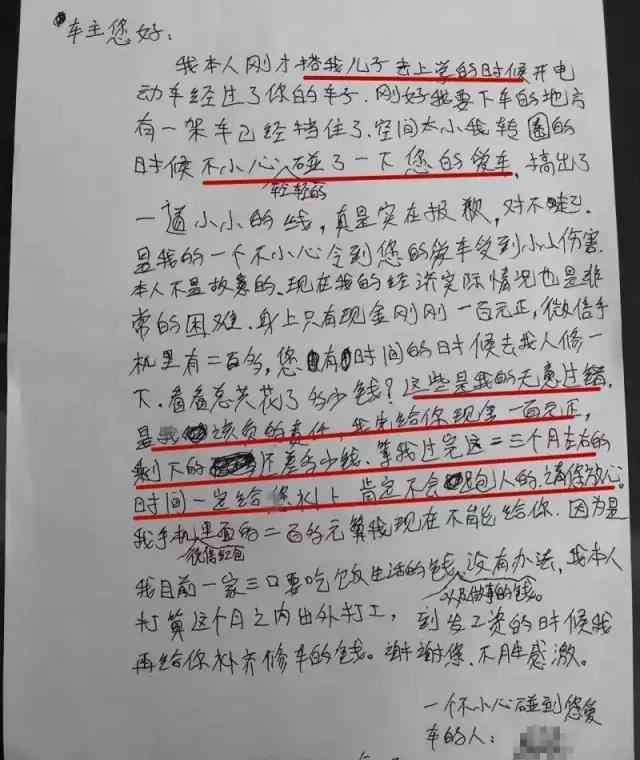 车主您好：
我本人刚才搭我儿子去上学的时候开电
动车经过了你的车子.刚好我要下车的地方
有一架车已经挡住了.空间太小我转圈的
时候不小心碰了一下您的爱车,搞出了
轻轻的
一道小小的线,真是实在报歉,对不起.
是我的一个不小心令到您的爱车受到小小伤害.
本人不是故意的.现在我的经济实际情况也是非
常的困难.身上只有现金刚刚一百元正,微信手
机里有二百多,您有时间的日时候去找人修一
下.看看总共花了多少钱?这些是我的无意过错,
是我该负的责任,我先给你现金一百元正,
剩下的还差多少钱.等我过完这二三个月左右的
时间一定给您补上 肯定不会跑人的.请您放心.
我手机里面的二百多元算我现在不能给你.因为是
微信红包
我目前一家三口要吃饭生活的钱,没有办法,我本人
以及做事的钱。
打算这个月之内出外打工, 到发工资的时候我
再给你补齐修车的钱。谢谢您.不胜感激。
一个不小心碰到您爱
车的人：